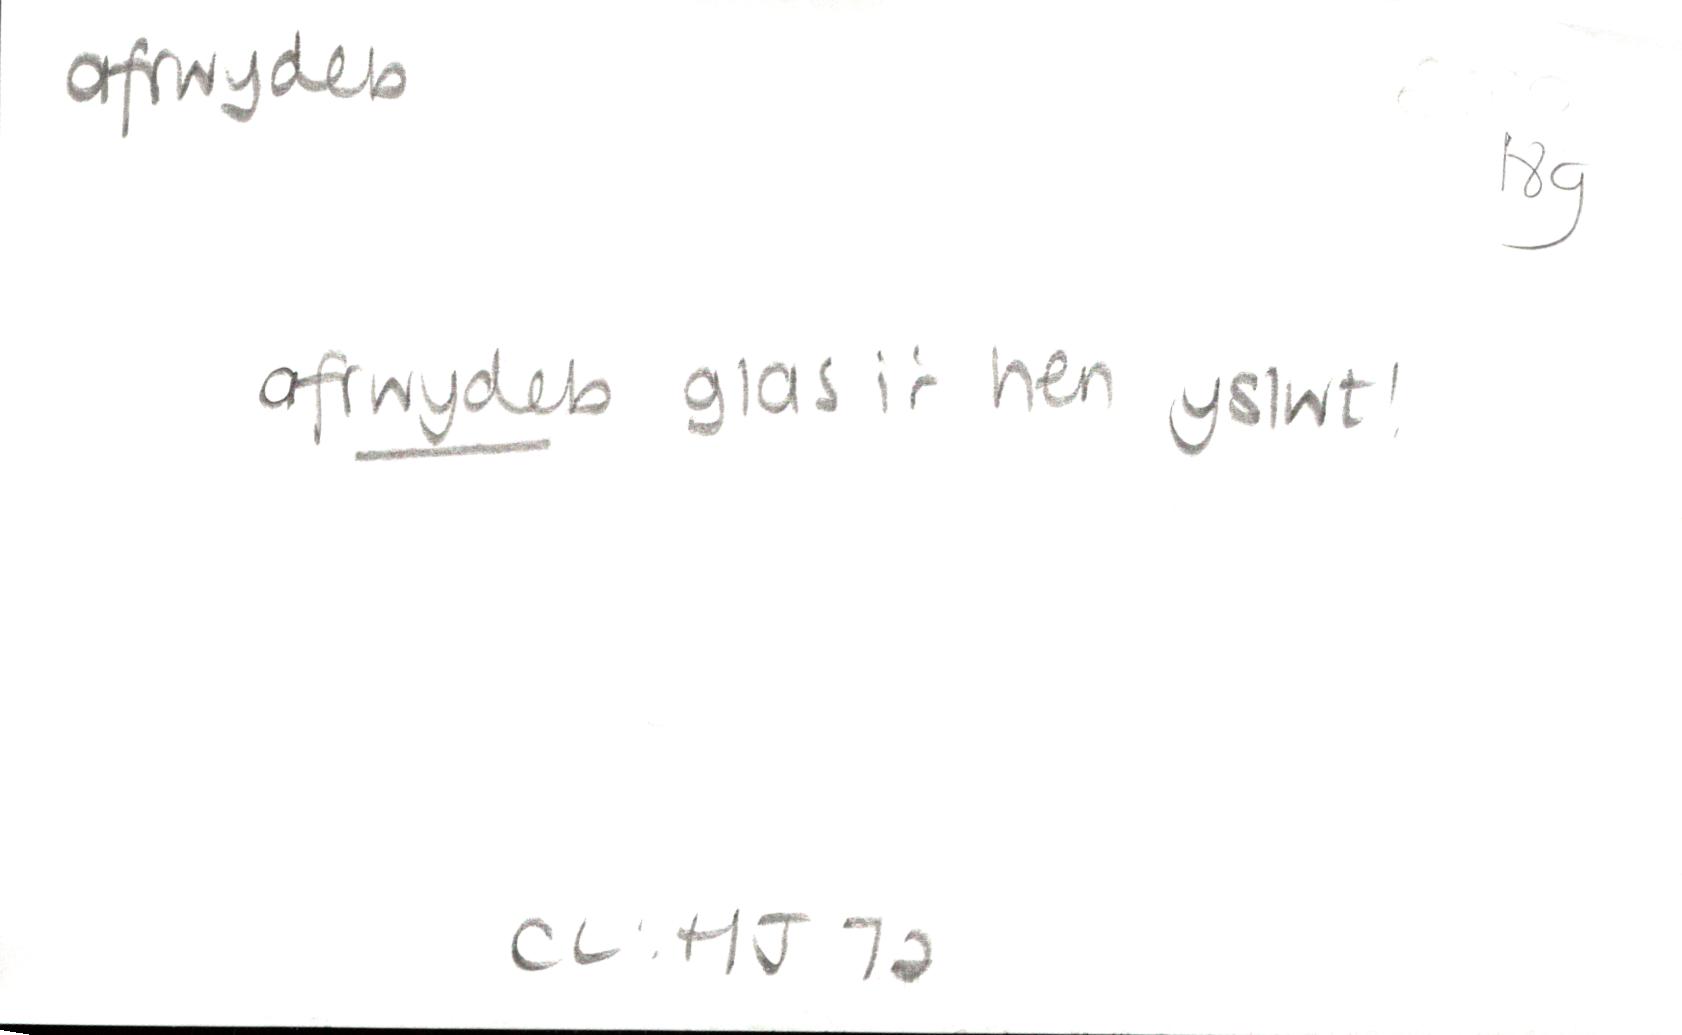 afrwydeb
18g
afrwydeb glas i'r hen yslwt!
CLl: HJ 72